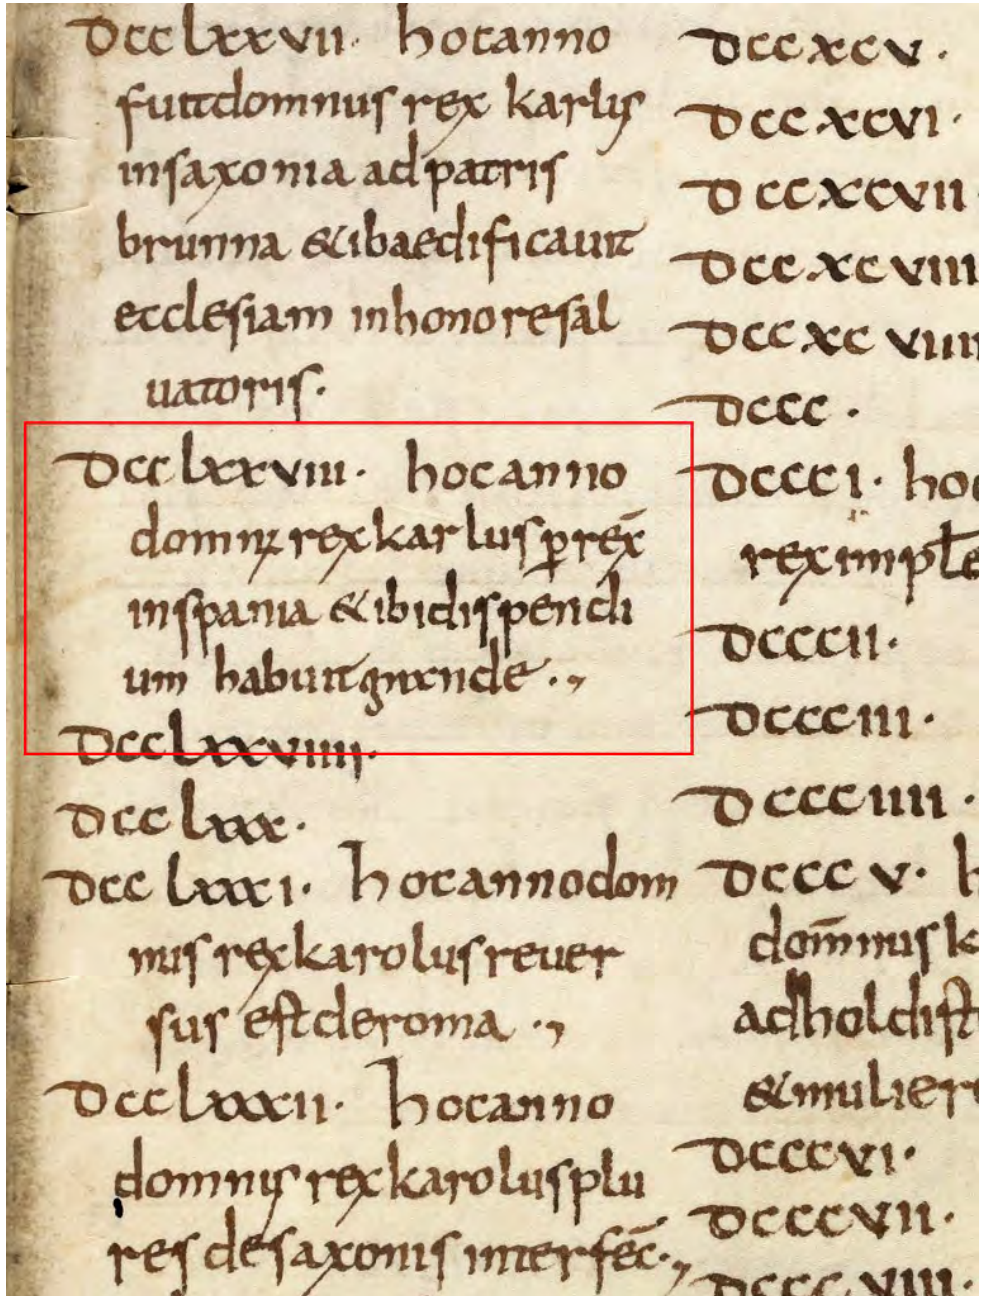 Dcclxxvii· hocanno
fuitdomnus rex karlus
insaxonia ad patris
brunna &ibaedificauit
ecclesiam inhonoresal
uatoris·
Dcclxxviii· hocanno
domnus rex karlus p̱rex̄
inspania &ibidispendi
um habuit grande·,
Dcclxxviiii·
Dcclxxx·
Dcclxxxi· hocannodom
nus rex karolus reuer
sus est deroma ·,
Dcclxxxii· hocanno
domnus rex karolus plu
res desaxonis interfec̄·,
Dccxcv·
Dccxcvi·
Dccxcvii
Dccxcviii
Dccxcviiii
Dccc·
Dccci· hoc
rex impłe
Dcccii·
Dccciii·
Dccciiii·
Dcccv· h
dom̄nus k
adholdist
&muliere
Dcccvi·
Dcccvii·
Dcccviii·